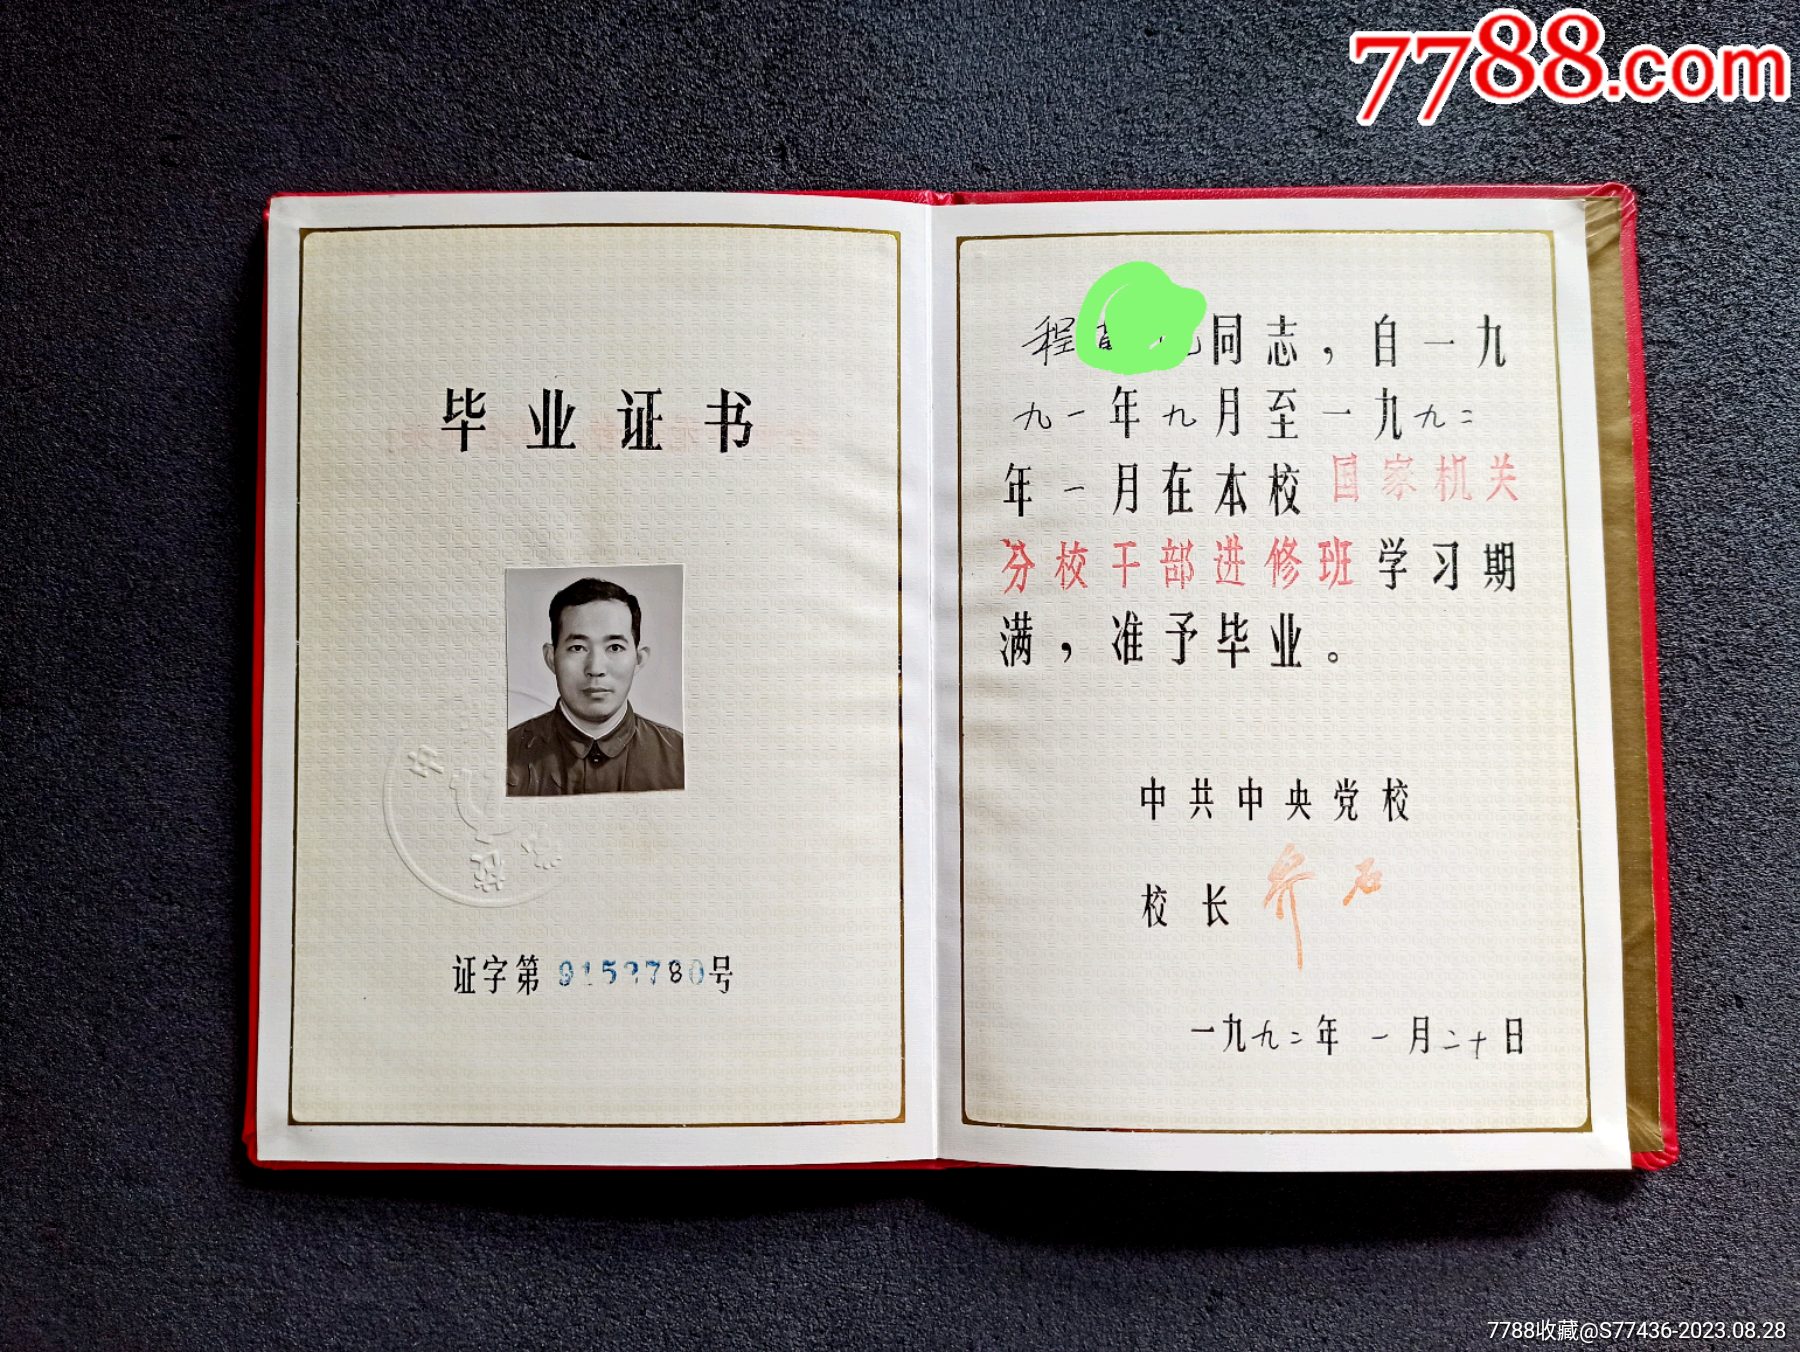 7788.com
毕业证书
中 校
证字第9152780号
程 同志，自一九
九一年九月至一九九二
年一月在本校国家机关
分校干部进修班学习期
满，准予毕业。
中共中央党校
校长 乔石
一九九二年一月二十日
7788收藏@S77436-2023.08.28